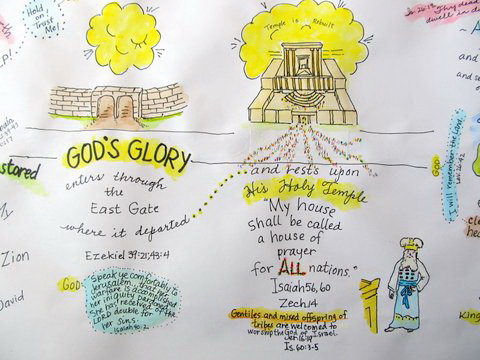 Hold
on
Trust
Me!
Temple is Rebuilt
GOD'S GLORY
enters through
the
East Gate
where it departed
Ezekiel 39:21, 43:4
God-
Speak ye comfortably to
Jerusalem
warfare is accomplished
her iniquity pardoned
She has received of the
LORD double for
her sins.
Isaiah 40:2
and rests upon
His Holy Temple
"My house
shall be called
a house of
prayer
for ALL nations."
Isaiah 56, 60
Zech 14
Gentiles and mixed offspring of
tribes are welcomed to
worship the God of Israel.
Jer. 16:19
Is. 60:3-5
stored
My
Zion
David
dwell in d
God:
I will remember the Land
Lev. 26:42